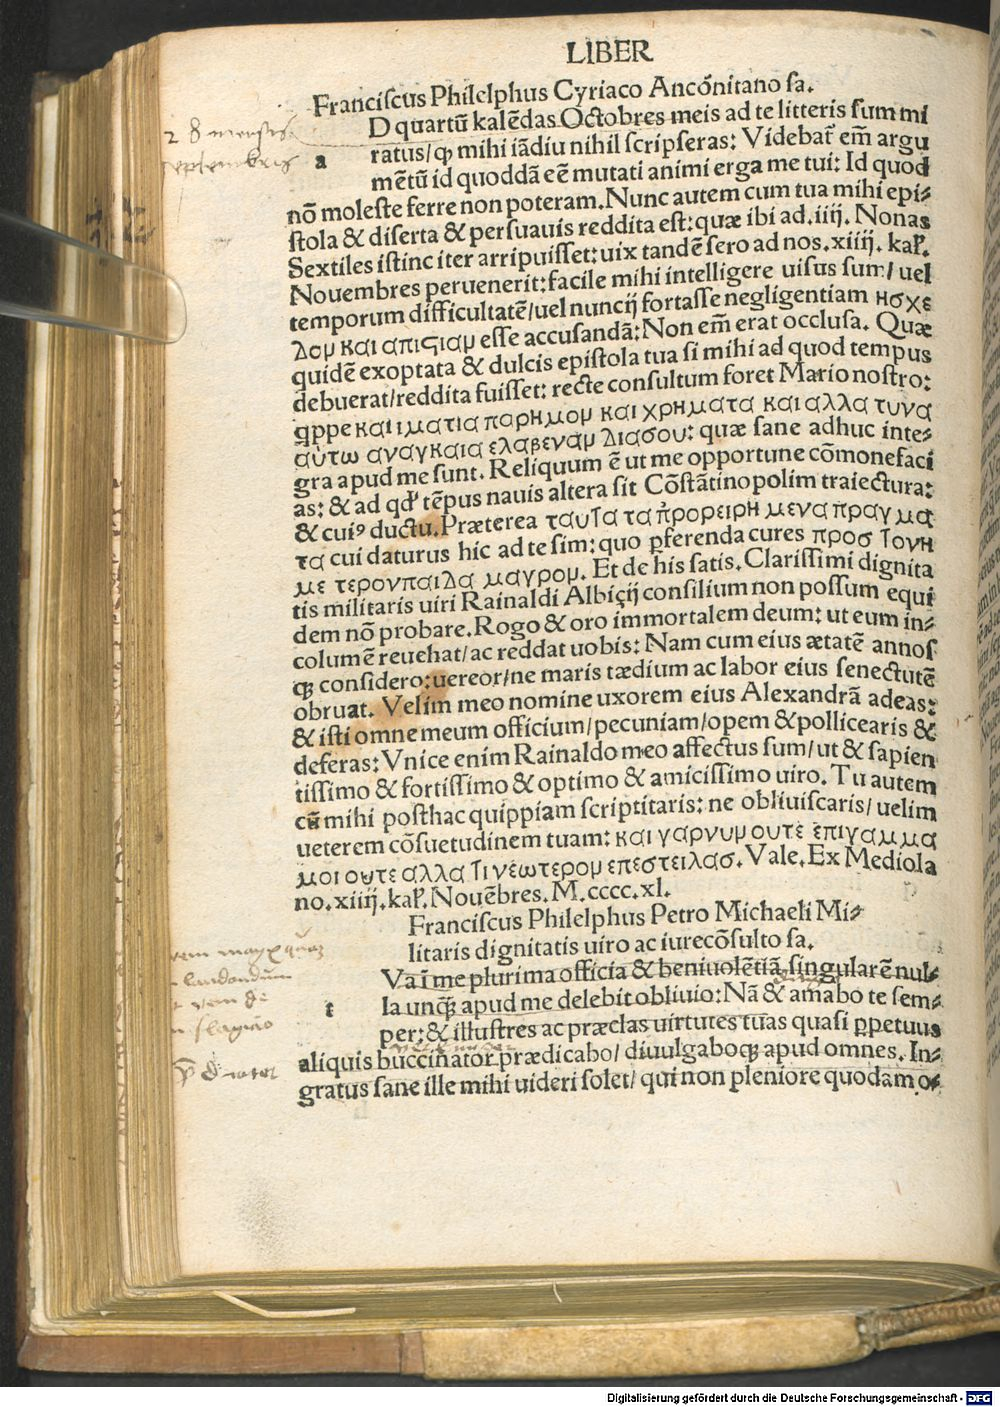 LIBER
Franciſcus Philelphus Cyriaco Ancōnitano ſa.
2 8 mensis
septembris
a
D quartū kalēdas Octobres meis ad te litteris ſum mi
ratus/ꝙ mihi iādiu nihil ſcripſeras: Videbat̄ em̄ argu
mētū id quoddā eē mutati animi erga me tui: Id quod
nō moleſte ferre non poteram. Nunc autem cum tua mihi epi-
ſtola & diſerta & perſuauis reddita eſt: quæ ibi ad. iiij. Nonas
Sextiles iſtinc iter arripuiſſet: uix tandē ſero ad nos. xiiij. kal̄.
Nouembres peruenerit: facile mihi intelligere uiſus ſum/ uel
temporum difficultatē/uel nuncij fortaſſe negligentiam ησχε
λομ και απιςιαμ eſſe accuſandā: Non em̄ erat occluſa. Quæ
quidē exoptata & dulcis epiſtola tua ſi mihi ad quod tempus
debuerat/reddita fuiſſet: recte conſultum foret Mario noſtro:
qppe και ιματια παρημομ και χρηματα και αλλα τυνα
αὐτω αναγκαια ελαβεναμ διασου: quæ ſane adhuc inte-
gra apud me ſunt. Reliquum ē ut me opportune cōmonefaci
as: & ad qd' tēpus nauis altera ſit Cōſtātinopolim traiectura:
& cuiꝰ ductu. Præterea ταυτα τα προρειρημενα πραγμα
τα cui daturus hic ad te ſim: quo ꝑferenda cures προσ τονη
με τερονπαιδα μαγρομ. Et de his ſatis. Clariſſimi dignita
tis militaris uiri Rainaldi Albiçij conſilium non poſſum equi
dem nō probare. Rogo & oro immortalem deum: ut eum in-
columē reuehat/ ac reddat uobis: Nam cum eius ætatē annoſ
qȝ conſidero: uereor/ne maris tædium ac labor eius ſenectutē
obruat. Velim meo nomine uxorem eius Alexandrā adeas:
& iſti omne meum officium/pecuniam/opem & pollicearis &
deferas: Vnice enim Rainaldo meo affectus ſum/ ut & ſapien
tiſſimo & fortiſſimo & optimo & amiciſſimo uiro. Tu autem
cū mihi poſthac quippiam ſcriptitaris: ne obliuiſcaris/ uelim
ueterem cōſuetudinem tuam: και γαρνυμ ουτε ἐπιγαμμα
μοι ουτε αλλα τι νέωτερομ επεστειλασ. Vale. Ex Mediola
no. xiiij. kal̄. Nouēbres. M. cccc. xl.
Franciſcus Philelphus Petro Michaeli Mi-
litaris dignitatis uiro ac iurecōſulto ſa.
t
Va ī me plurima officia & beniuolētiā ſingularē nul-
la unqȝ apud me delebit obliuio: Nā & amabo te ſem-
per: & illuſtres ac præclas uirtutes tuas quaſi ꝑpetuus
aliquis buccinator prædicabo/ diuulgaboqȝ apud omnes. In-
gratus ſane ille mihi uideri ſolet/ qui non pleniore quodam o-
Digitalisierung gefördert durch die Deutsche Forschungsgemeinschaft - DFG